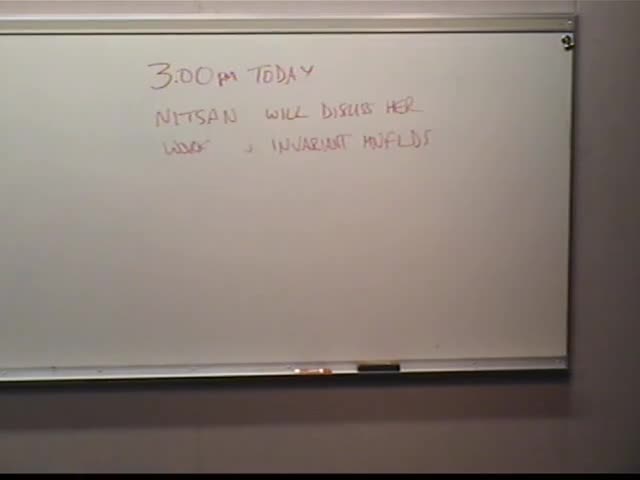 3:00PM TODAY
NITSAN WILL DISCUSS HER
WORK INVARIANT MNFLDS